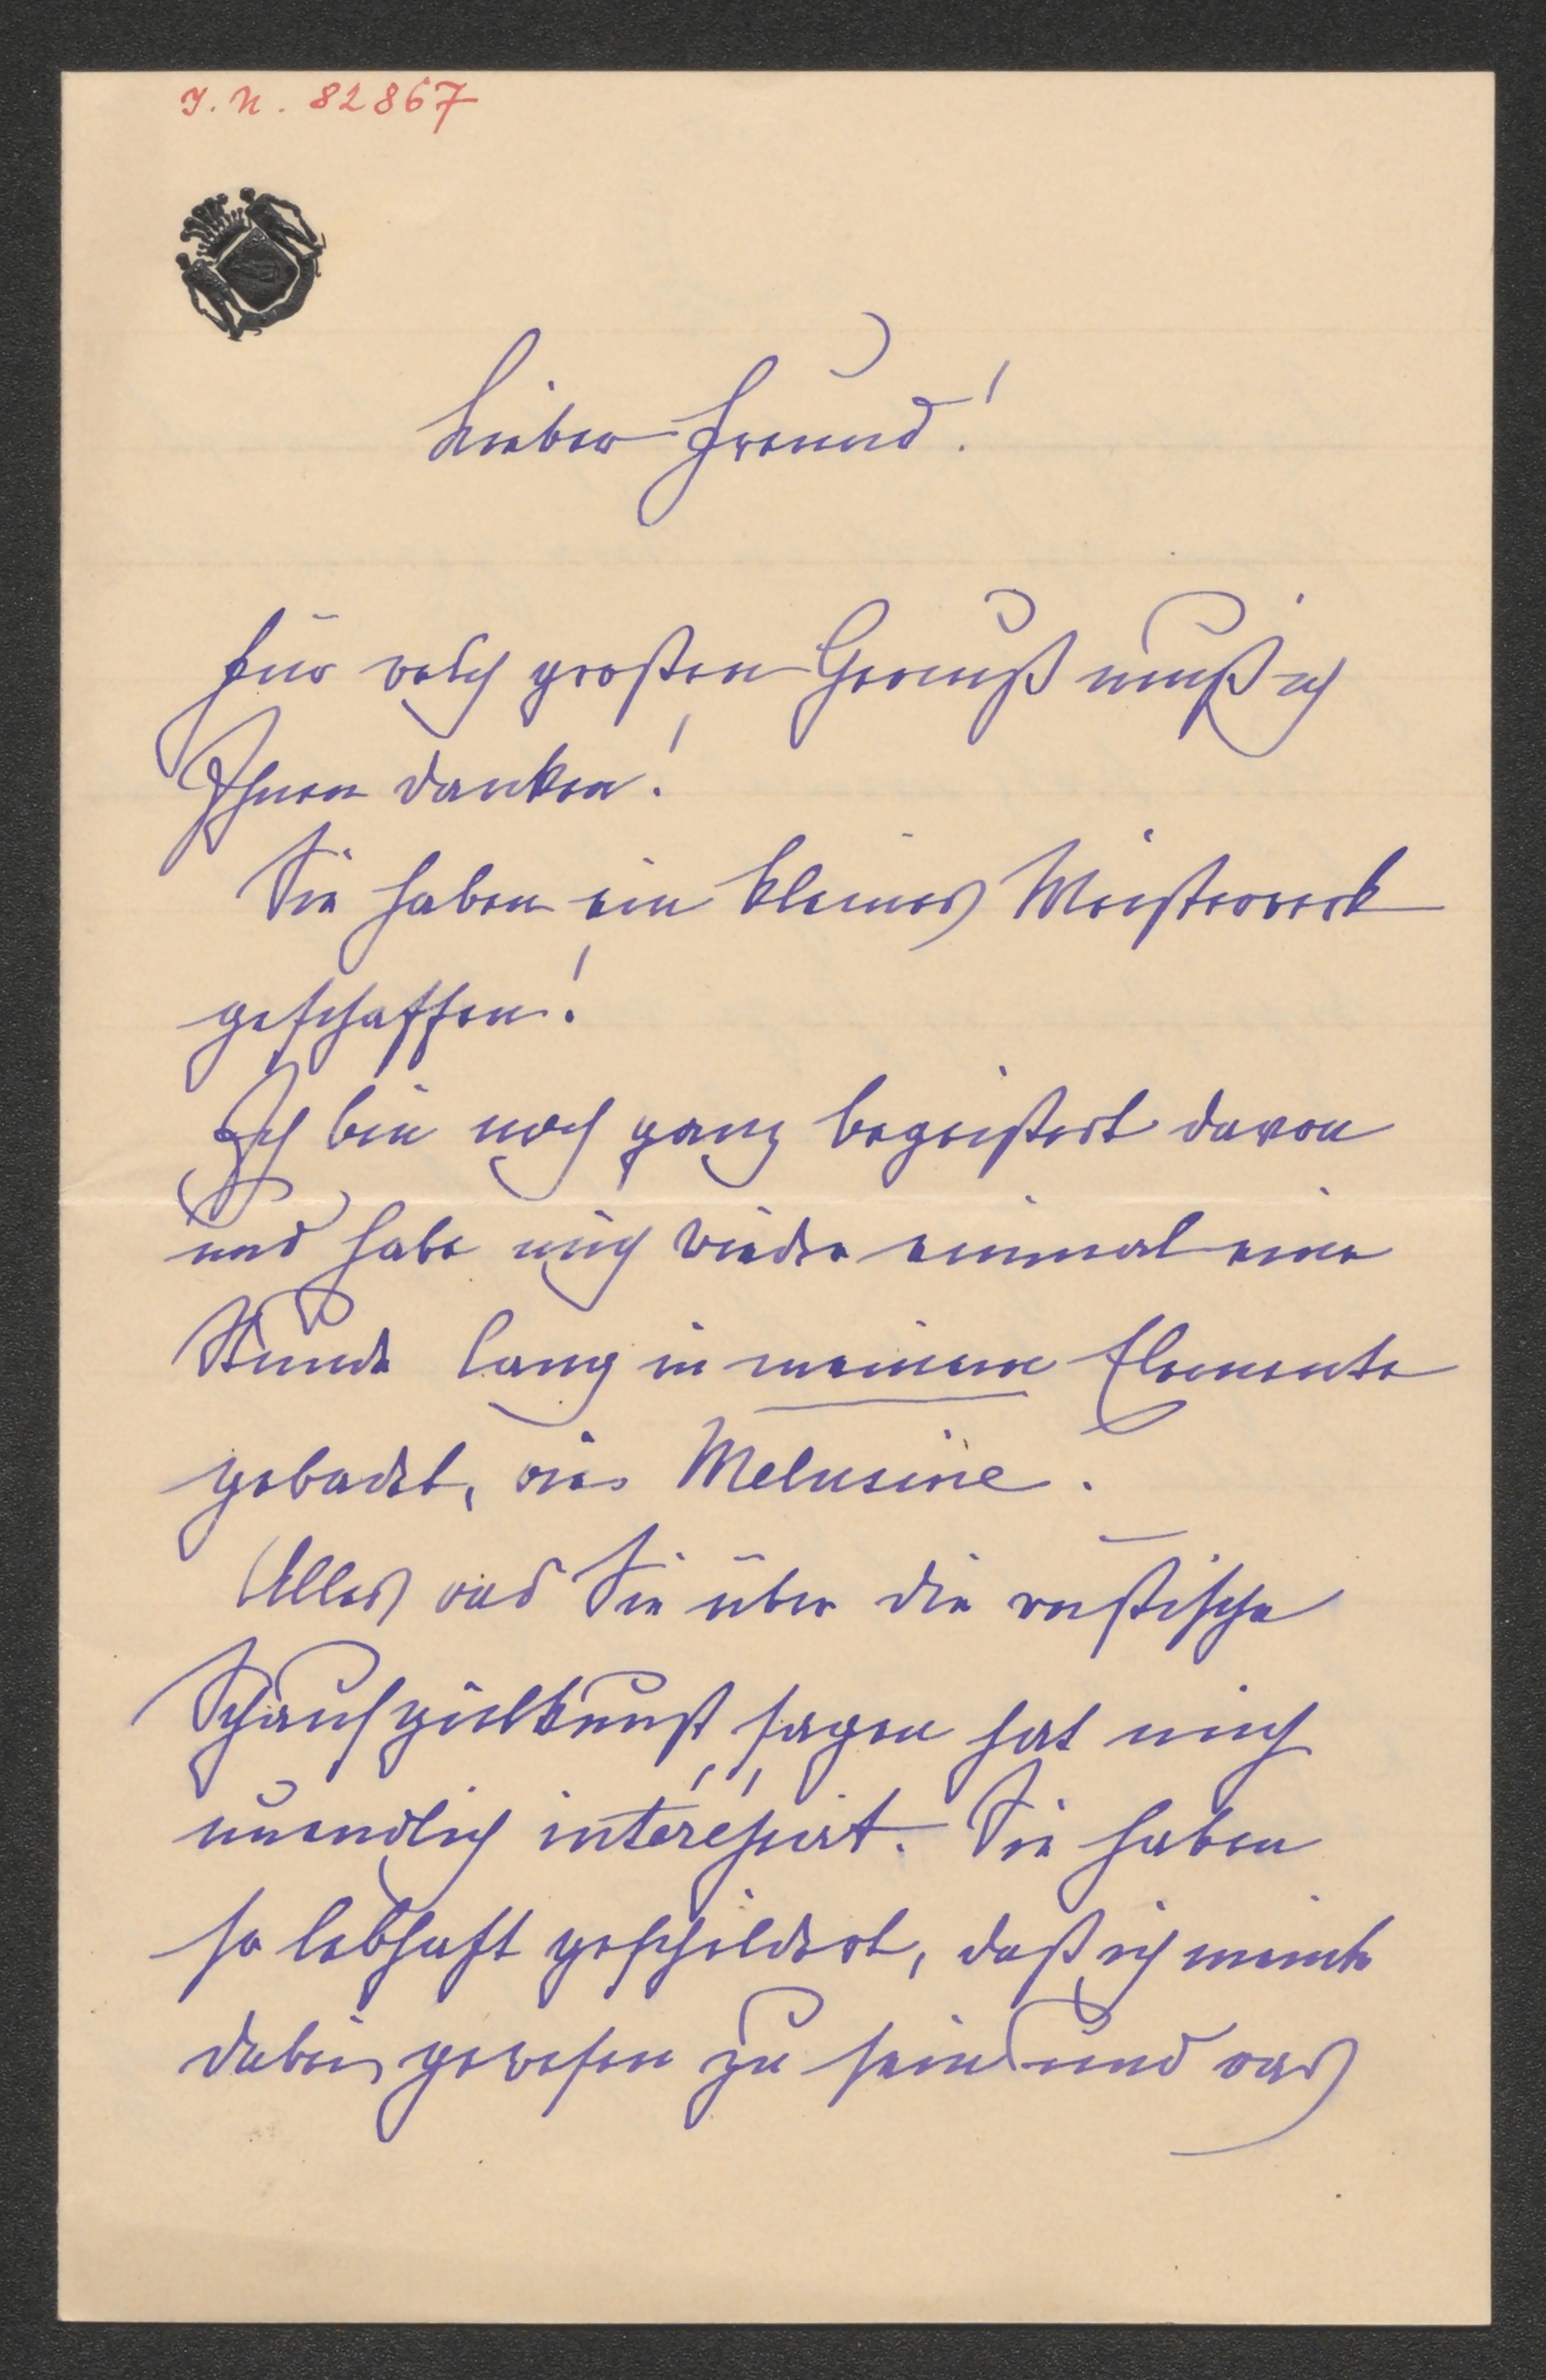 J. N. 82867
Lieber Freund!
Für welch großen Genuß muß ich
Ihnen danken!
Sie haben ein kleines Meisterwerk
geschaffen!
Ich bin noch ganz begeistert davon
und habe mich wieder einmal eine
Stunde lang in meinem Elemente
gebadet, wie Melusine.
Alles was Sie über die russische
Schauspielkunst sagen hat mich
unendlich interessirt. Sie haben
so lebhaft geschildert, daß ich meinte
dabei gewesen zu sein und was